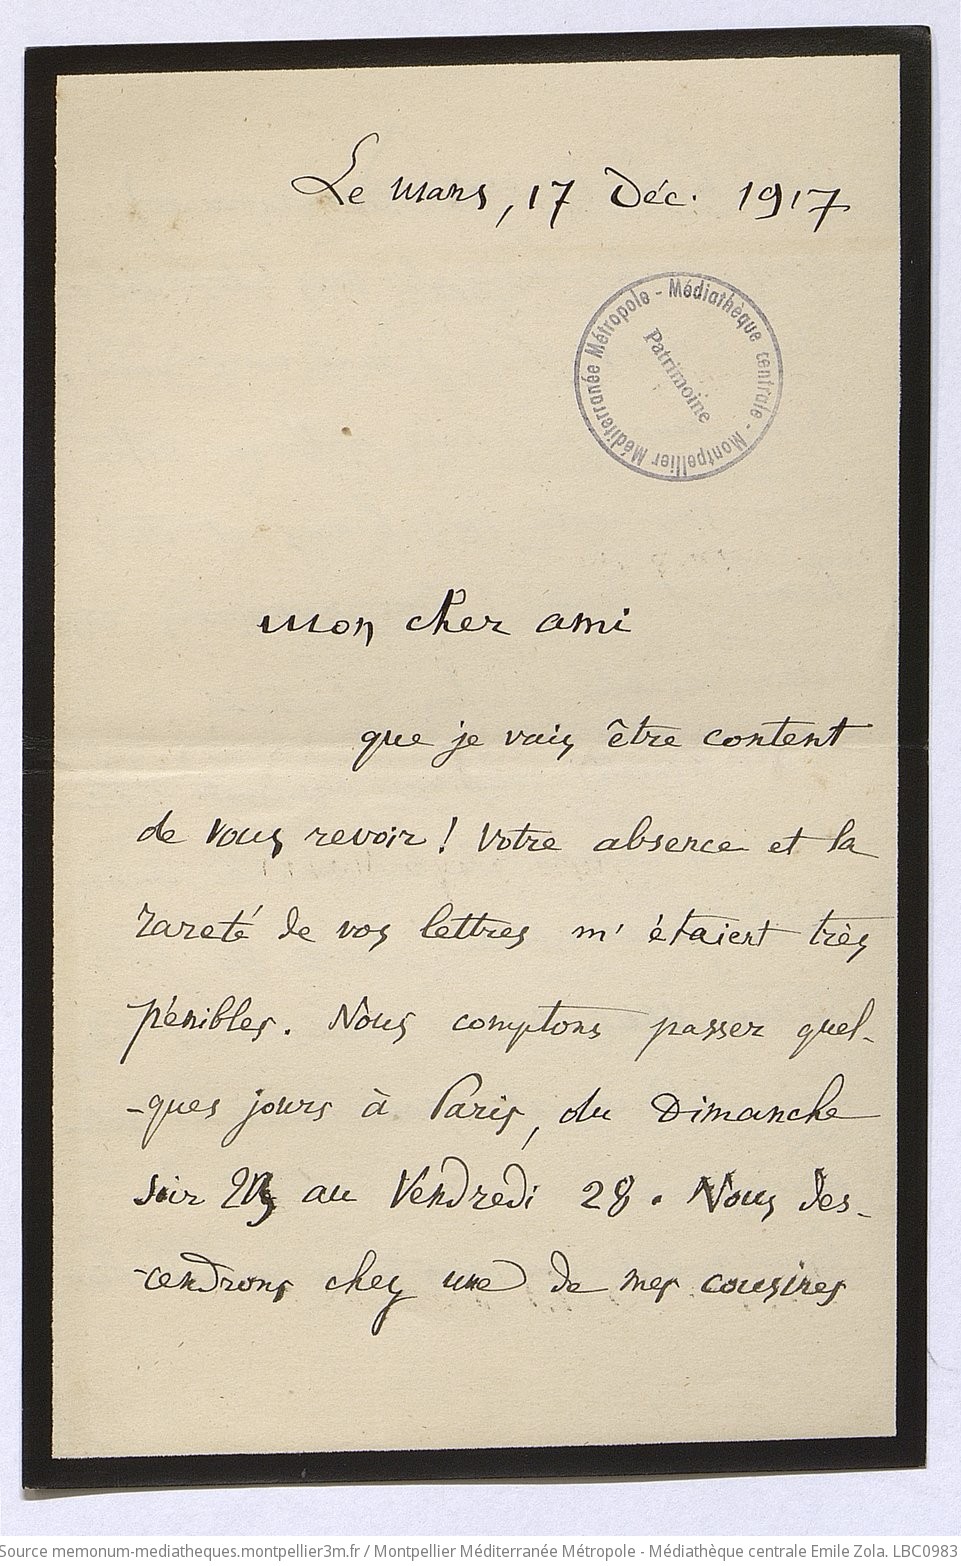 Le Mans, 17 Déc. 1917
Médiathèque centrale - Montpellier Méditerranée Métropole -
Patrimoine
Mon cher ami
que je vais être content
de vous revoir ! Votre absence et la
rareté de vos lettres m'étaient très
pénibles. Nous comptons passer quel-
-ques jours à Paris, du Dimanche
soir 23 au Vendredi 28. Nous des-
-cendrons chez une de mes cousines
Source memonum-mediatheques.montpellier3m.fr / Montpellier Méditerranée Métropole - Médiathèque centrale Emile Zola. LBC0983